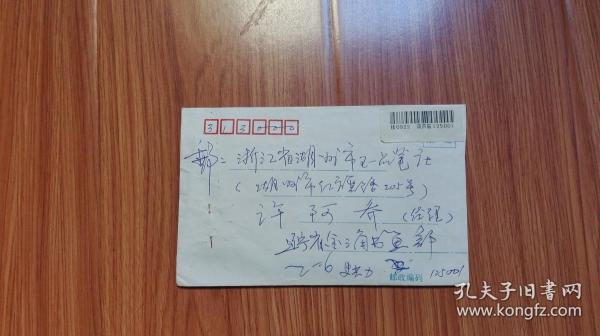 313000
挂0922 葫芦岛125001
邮:浙江省湖州市王一品笔庄
(湖州市红旗路205号)
许阿乔(经理)
辽宁省金三角书画部
邮政编码 125001
孔夫子旧书网
www.kongfz.com